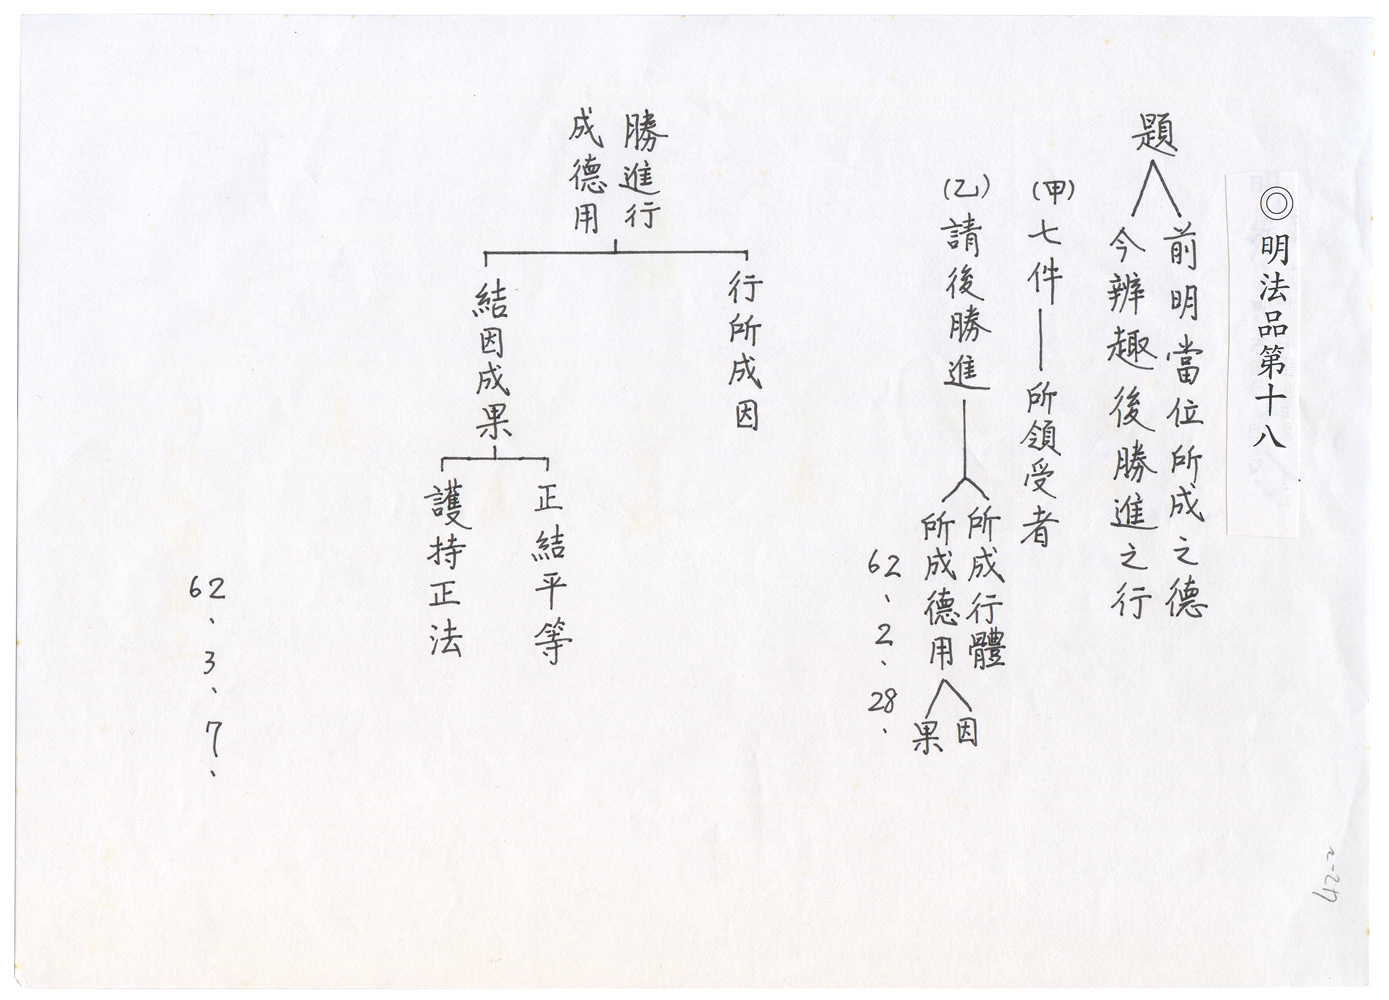 ◎明法品第十八
題
前明當位所成之德
今辨趣後勝進之行
(甲)七件
所領受者
(乙)請後勝進
所成行體
所成德用
因
果
62、2、28、
勝進行
成德用
行所成因
結因成果
正結平等
護持正法
62、3、7、
42-2